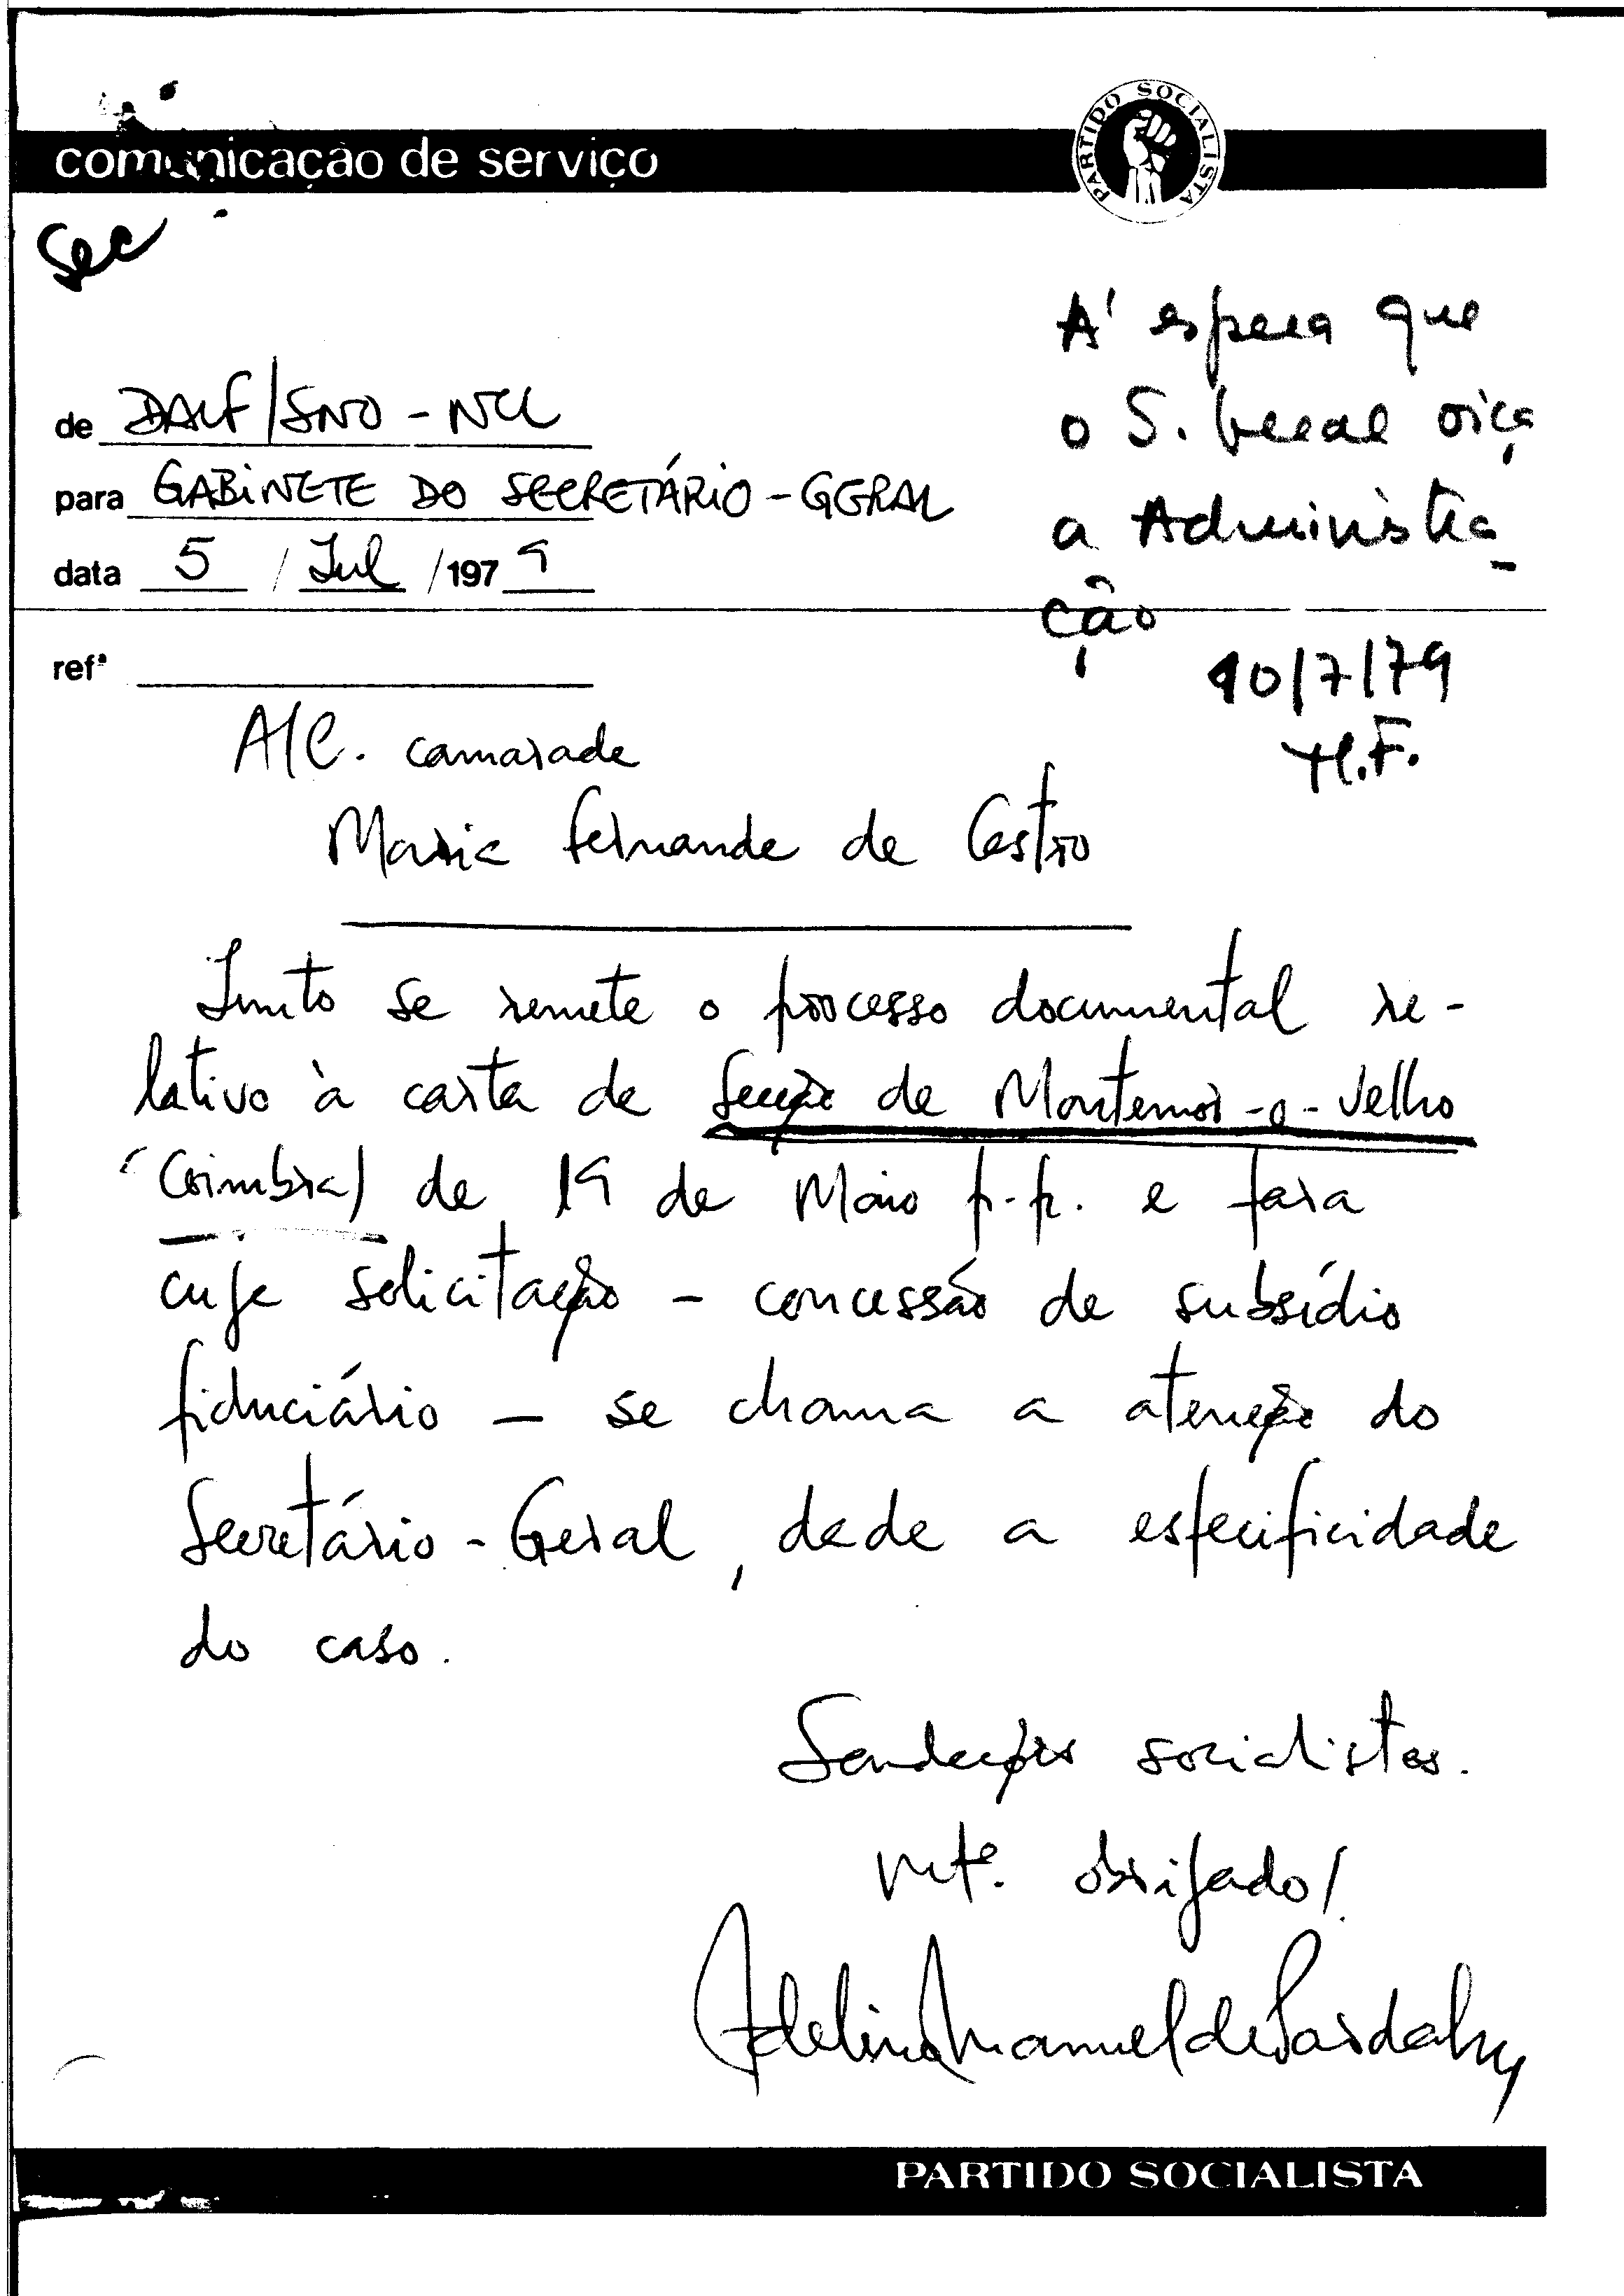 comunicação de serviço
PARTIDO SOCIALISTA
Sec
À espera que
o S. Geral oiça
a Administra-
ção
10/7/79
M.F.
de DALF/SNO - NCL
para GABINETE DO SECRETÁRIO-GERAL
data 5 / Jul / 1979
refª
A/C. camarada
Maria Fernanda de Castro
Junto se remete o processo documental re-
lativo à carta da Secção de Montemor-o-Velho
(Coimbra) de 19 de Maio p.p. e para
cuja solicitação - concessão de subsídio
fiduciário - se chama a atenção do
Secretário-Geral, dada a especificidade
do caso.
Saudações socialistas.
mtº. obrigado!
Adelino Manuel de
PARTIDO SOCIALISTA